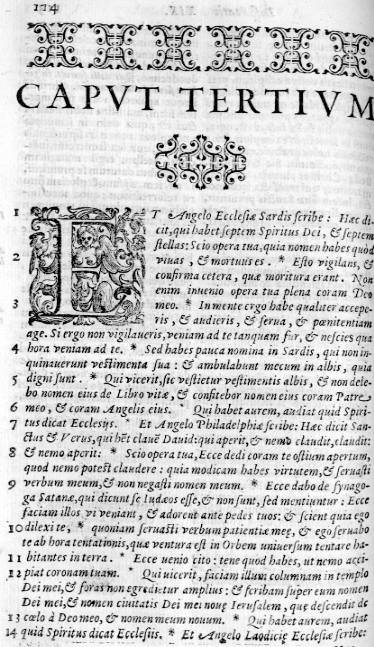 174
CAPVT TERTIVM
1 ET Angelo Ecclesiæ Sardis scribe: Hæc di-
cit, qui habet septem Spiritus Dei, & septem
stellas: Scio opera tua, quia nomen habes quòd
2 viuas, & mortuus es. * Esto vigilans, &
confirma cetera, quæ moritura erant. Non
enim inuenio opera tua plena coram Deo
3 meo. * In mente ergo habe qualiter accepe-
ris, & audieris, & serua, & pœnitentiam
age. Si ergo non vigilaueris, veniam ad te tanquam fur, & nescies qua
4 hora veniam ad te. * Sed habes pauca nomina in Sardis, qui non in-
quinauerunt vestimenta sua: & ambulabunt mecum in albis, quia
5 digni sunt. * Qui vicerit, sic vestietur vestimentis albis, & non dele-
bo nomen eius de Libro vitæ, & confitebor nomen eius coram Patre
6 meo, & coram Angelis eius. Qui habet aurem, audiat quid Spiri-
7 tus dicat Ecclesijs. * Et Angelo Philadelphiæ scribe: Hæc dicit San-
ctus & Verus, qui hẽt clauẽ Dauid: qui aperit, & nemo claudit, claudit:
8 & nemo aperit: * Scio opera tua, Ecce dedi coram te ostium apertum,
quod nemo potest claudere: quia modicam habes virtutem, & seruasti
9 verbum meum, & non negasti nomen meum. * Ecce dabo de synago-
ga Satanæ, qui dicunt se Iudæos esse, & non sunt, sed mentiuntur: Ecce
faciam illos vt veniant, & adorent ante pedes tuos: & scient quia ego
10 dilexi te, * quoniam seruasti verbum patientiæ meæ, & ego seruabo
te ab hora tentationis, quæ ventura est in Orbem uniuersum tentare ha-
11 bitantes in terra. * Ecce uenio cito: tene quod habes, ut nemo acci-
12 piat coronam tuam. * Qui uicerit, faciam illum columnam in templo
Dei mei, & foras non egredietur amplius: & scribam super eum nomen
Dei mei, & nomen ciuitatis Dei mei nouę Ierusalem, quę descendit de
13 cœlo à Deo meo, & nomen meum nouum. * Qui habet aurem, audiat
14 quid Spiritus dicat Ecclesiis. * Et Angelo Laodicię Ecclesiæ scribe: